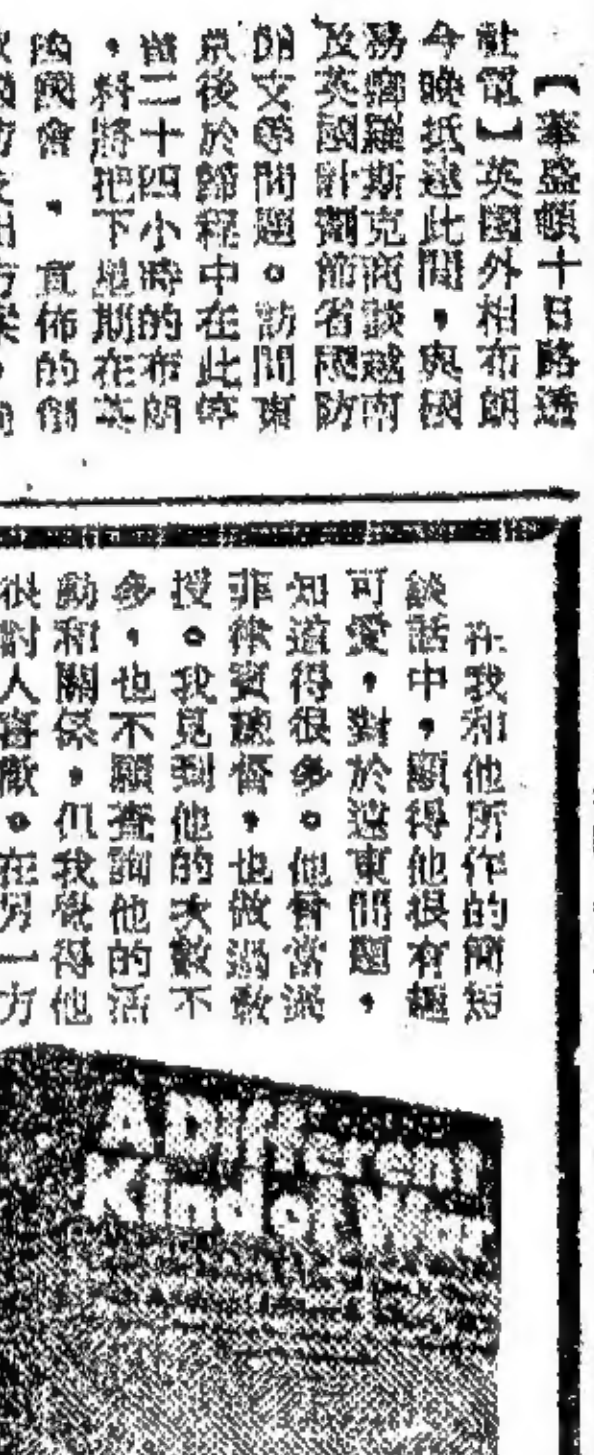 【華盛頓十日路透
社電】英國外相布朗
今晚抵達此間，與國
務卿羅斯克商談越南
及英國計劃節省國防
開支等問題。訪問東
京後於歸程中在此停
留二十四小時的布朗
，料將把下星期在英
國會，宣佈的削
在我和他所作的簡短
談話中，顯得他很有趣
可愛，對於遠東問題，
知道得很多。他曾當過
菲律賓總督，也做過教
授。我見到他的次數不
多，也不願查詢他的活
動和關係，但我覺得他
很討人喜歡。在另一方
A Different
Kind of War